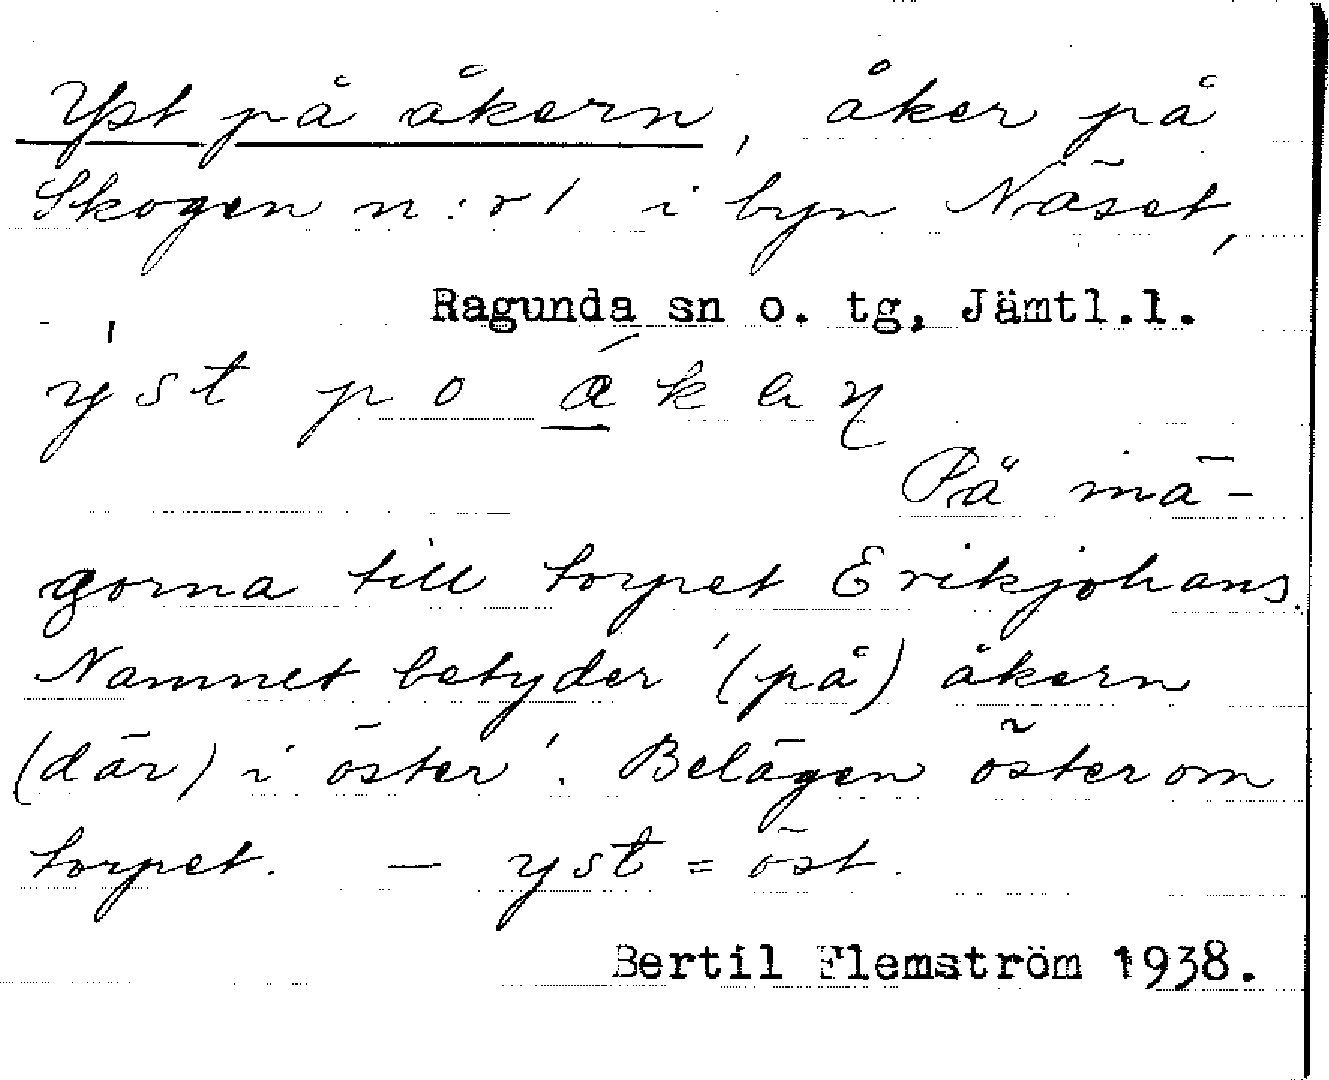 Yst på åkern, åker på
Skogen n:r 1 i byn Näset,
Ragunda sn o. tg, Jämtl.l.
På mä-
gorna till torpet Erikjohans.
Namnet betyder '(på) åkern
(där) i öster'. Belägen öster om
torpet. — yst = öst.
Bertil Flemström 1938.